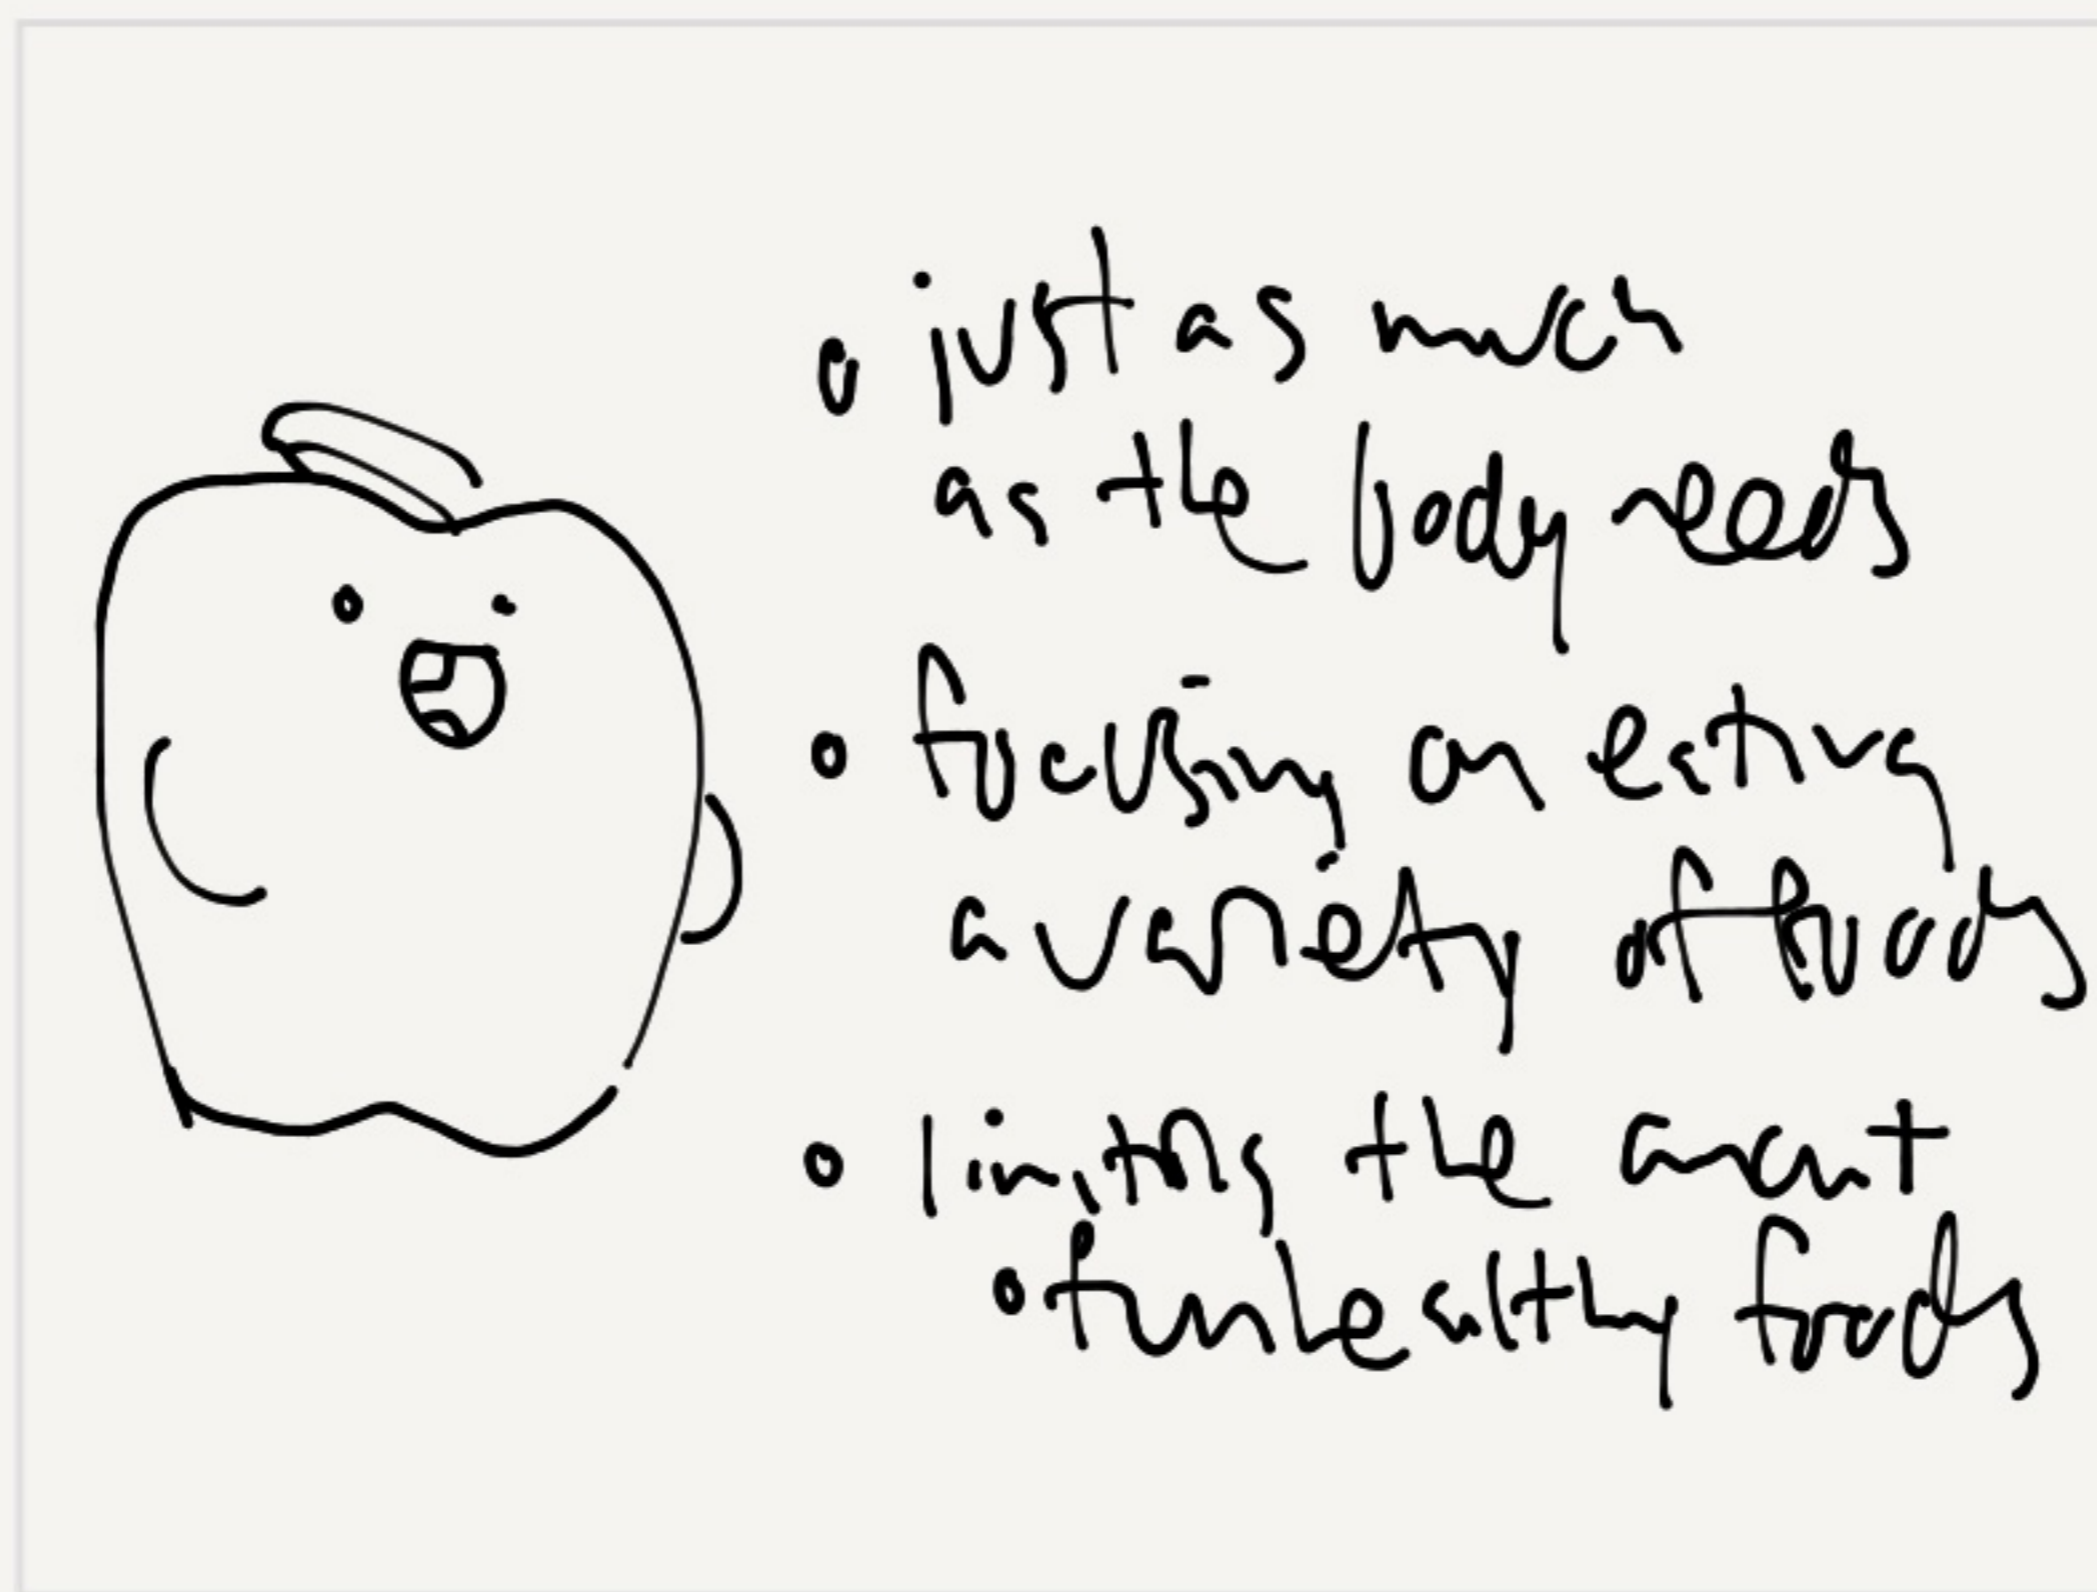 just as much
as the body needs
focusing on eating
a variety of foods
limiting the amount
of unhealthy foods